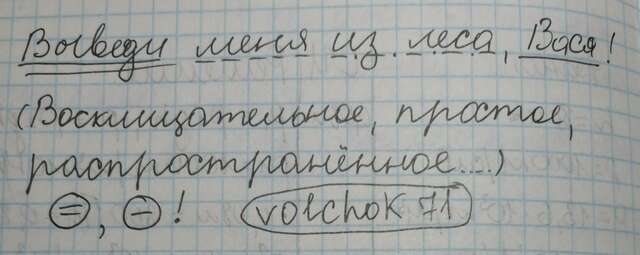 Выведи меня из леса, Вася!
(Восклицательное, простое,
распространённое....)
=, −! volchok 71